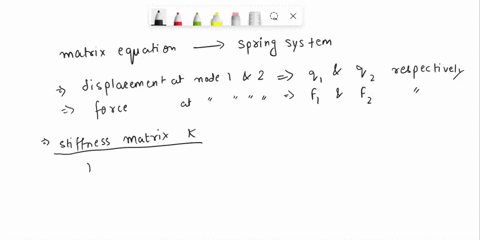 matrix equation → spring system
⇒ displacement at node 1 & 2 ⇒ q1 & q2 respectively
⇒ force at " " " " ⇒ f1 & f2 "
⇒ stiffness matrix K